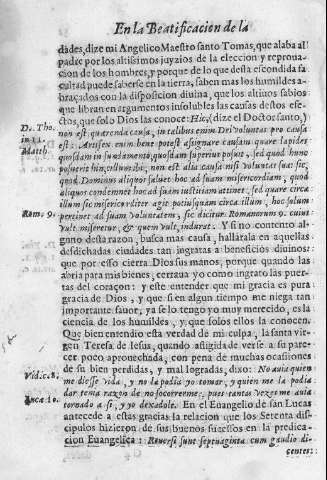 En la Beatificacion de la
dades, dize mi Angelico Maestro santo Tomas, que alaba al
padre por los altissimos juyzios de la eleccion y reproua-
cion de los hombres, y porque de lo que desta escondida fa
cultad puede saberse en la tierra, saben mas los humildes a-
braçados con la disposicion diuina, que los altiuos sabios
que libran en argumentos insolubles las causas destos efe-
ctos, que solo Dios las conoce: Hic, (dize el Doctor santo,)
D. Tho.
in 11.
Matth.
non est quærenda causa, in talibus enim Dei voluntas pro causa
est: Artifex enim bene potest assignare causam quare lapides
quosdam in fundamento quosdam superius posuit, sed quod hos
posuerit hic, & illos ibi, non est alia causa nisi voluntas sua: sic,
quod Dominus aliquos saluet hoc ad suam misericordiam, quod
aliquos condemnet hoc ad suam iustitiam attinet, sed quare circa
illum sic misericorditer agit potius quam circa illum, hoc solum
Rom. 9.
pertinet ad suam voluntatem, sic dicitur Romanorum 9. cuius
vult miseretur, & quem vult, indurat. Y si no contento al-
guno desta razon, busca mas causa, hallarala en aquellas
desdichadas ciudades tan ingratas a beneficios diuinos:
que por esso cierra Dios sus manos, porque quando las
abria para mis bienes, cerraua yo como ingrato las puer-
tas del coraçon: y este entender que mi gracia es pura
gracia de Dios, y que si en algun tiempo me niega tan
importante fauor, ya se lo tengo yo muy merecido, es la
ciencia de los humildes, y que solos ellos la conocen.
Que bien entendio esta verdad de mi culpa, la santa vir-
gen Teresa de Iesus, quando afligida de verse a su pare-
cer poco aprouechada, con pena de muchas ocasiones
de su bien perdidas, y mal logradas, dixo: No auia quien
Vid. c. 8.
me diesse vida, y no la podia yo tomar, y quien me la podia
dar tenia razon de no socorrerme, pues tantas vezes me auia
tornado a si, y yo dexadole. En el Euangelio de san Lucas
Lucæ 10.
antecede a estas gracias la relacion que los Setenta dis-
cipulos hizieron de sus buenos sucessos en la predica-
cion Euangelica: Reuersi sunt septuaginta cum gaudio di-
centes: